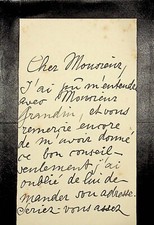 Cher Monsieur,
J'ai pu m'entendre
avec Monsieur
Grandin, et vous
remercie encore
de m'avoir donné
ce bon conseil-
seulement j'ai
oublié de lui de-
mander son adresse.
Seriez-vous assez